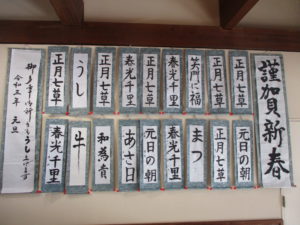 謹賀新春
正月七草
正月七草
笑門に福
春光千里
正月七草
春光千里
正月七草
うし
正月七草
元日の朝
正月七草
まつ
春光千里
元日の朝
あさ日
和為貴
牛
春光千里
御多幸をお祈りもうし上げます
令和三年 元旦